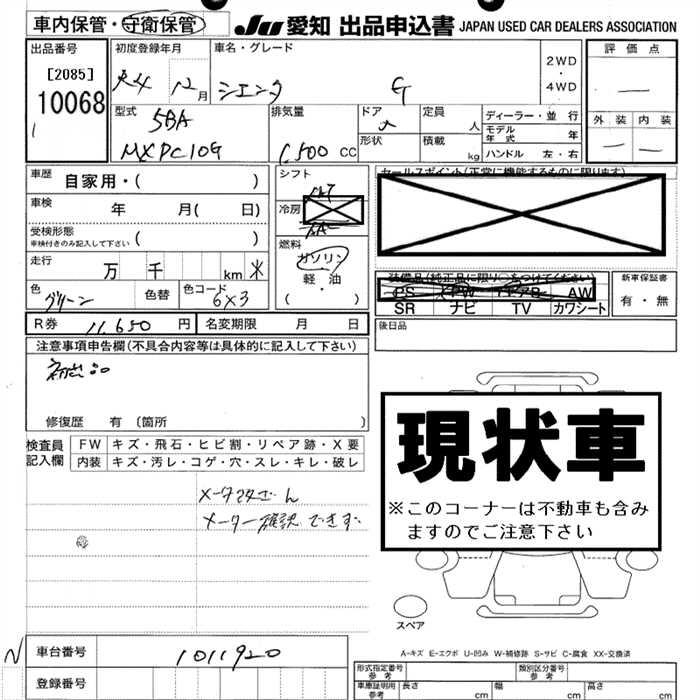 車内保管・守衛保管
JU 愛知 出品申込書 JAPAN USED CAR DEALERS ASSOCIATION
出品番号
[2085]
10068
初度登録年月
R4 12月
車名・グレード
シエンタ G
2WD
・
4WD
評価点
外装 内装
型式
5BA
MXPC10G
排気量
1500 CC
ドア
形状
定員 人
積載 kg
ディーラー・並行
モデル年式 年
ハンドル 左・右
車歴 自家用・( )
車検 年 月( 日)
受検形態
車検付きのみ記入して下さい ( )
走行 万 千 km
色 グリーン 色替 色コード 6X3
シフト
冷房
燃料
ガソリン
軽・油
( ・ )
セールスポイント(正常に機能するものに限ります)
装備品(純正品に限り○をつけてください)
PS PW エアB AW
SR ナビ TV カワシート
新車保証書
有・無
後日品
R券 11,650 円 名変期限 月 日
注意事項申告欄(不具合内容等は具体的に記入して下さい)
修復歴 有 〔箇所 〕
検査員記入欄
FW キズ・飛石・ヒビ割・リペア跡・X要
内装 キズ・汚レ・コゲ・穴・スレ・キレ・破レ
メーター確認できず
現状車
※このコーナーは不動車も含み
ますのでご注意下さい
スペア
A-キズ E-エクボ U-凹み W-補修跡 S-サビ C-腐食 XX-交換済
N
車台番号 1011920
登録番号
形式指定番号
参考
類別区分番号
参考
車庫証明用
参考
長さ cm 幅 cm 高さ cm